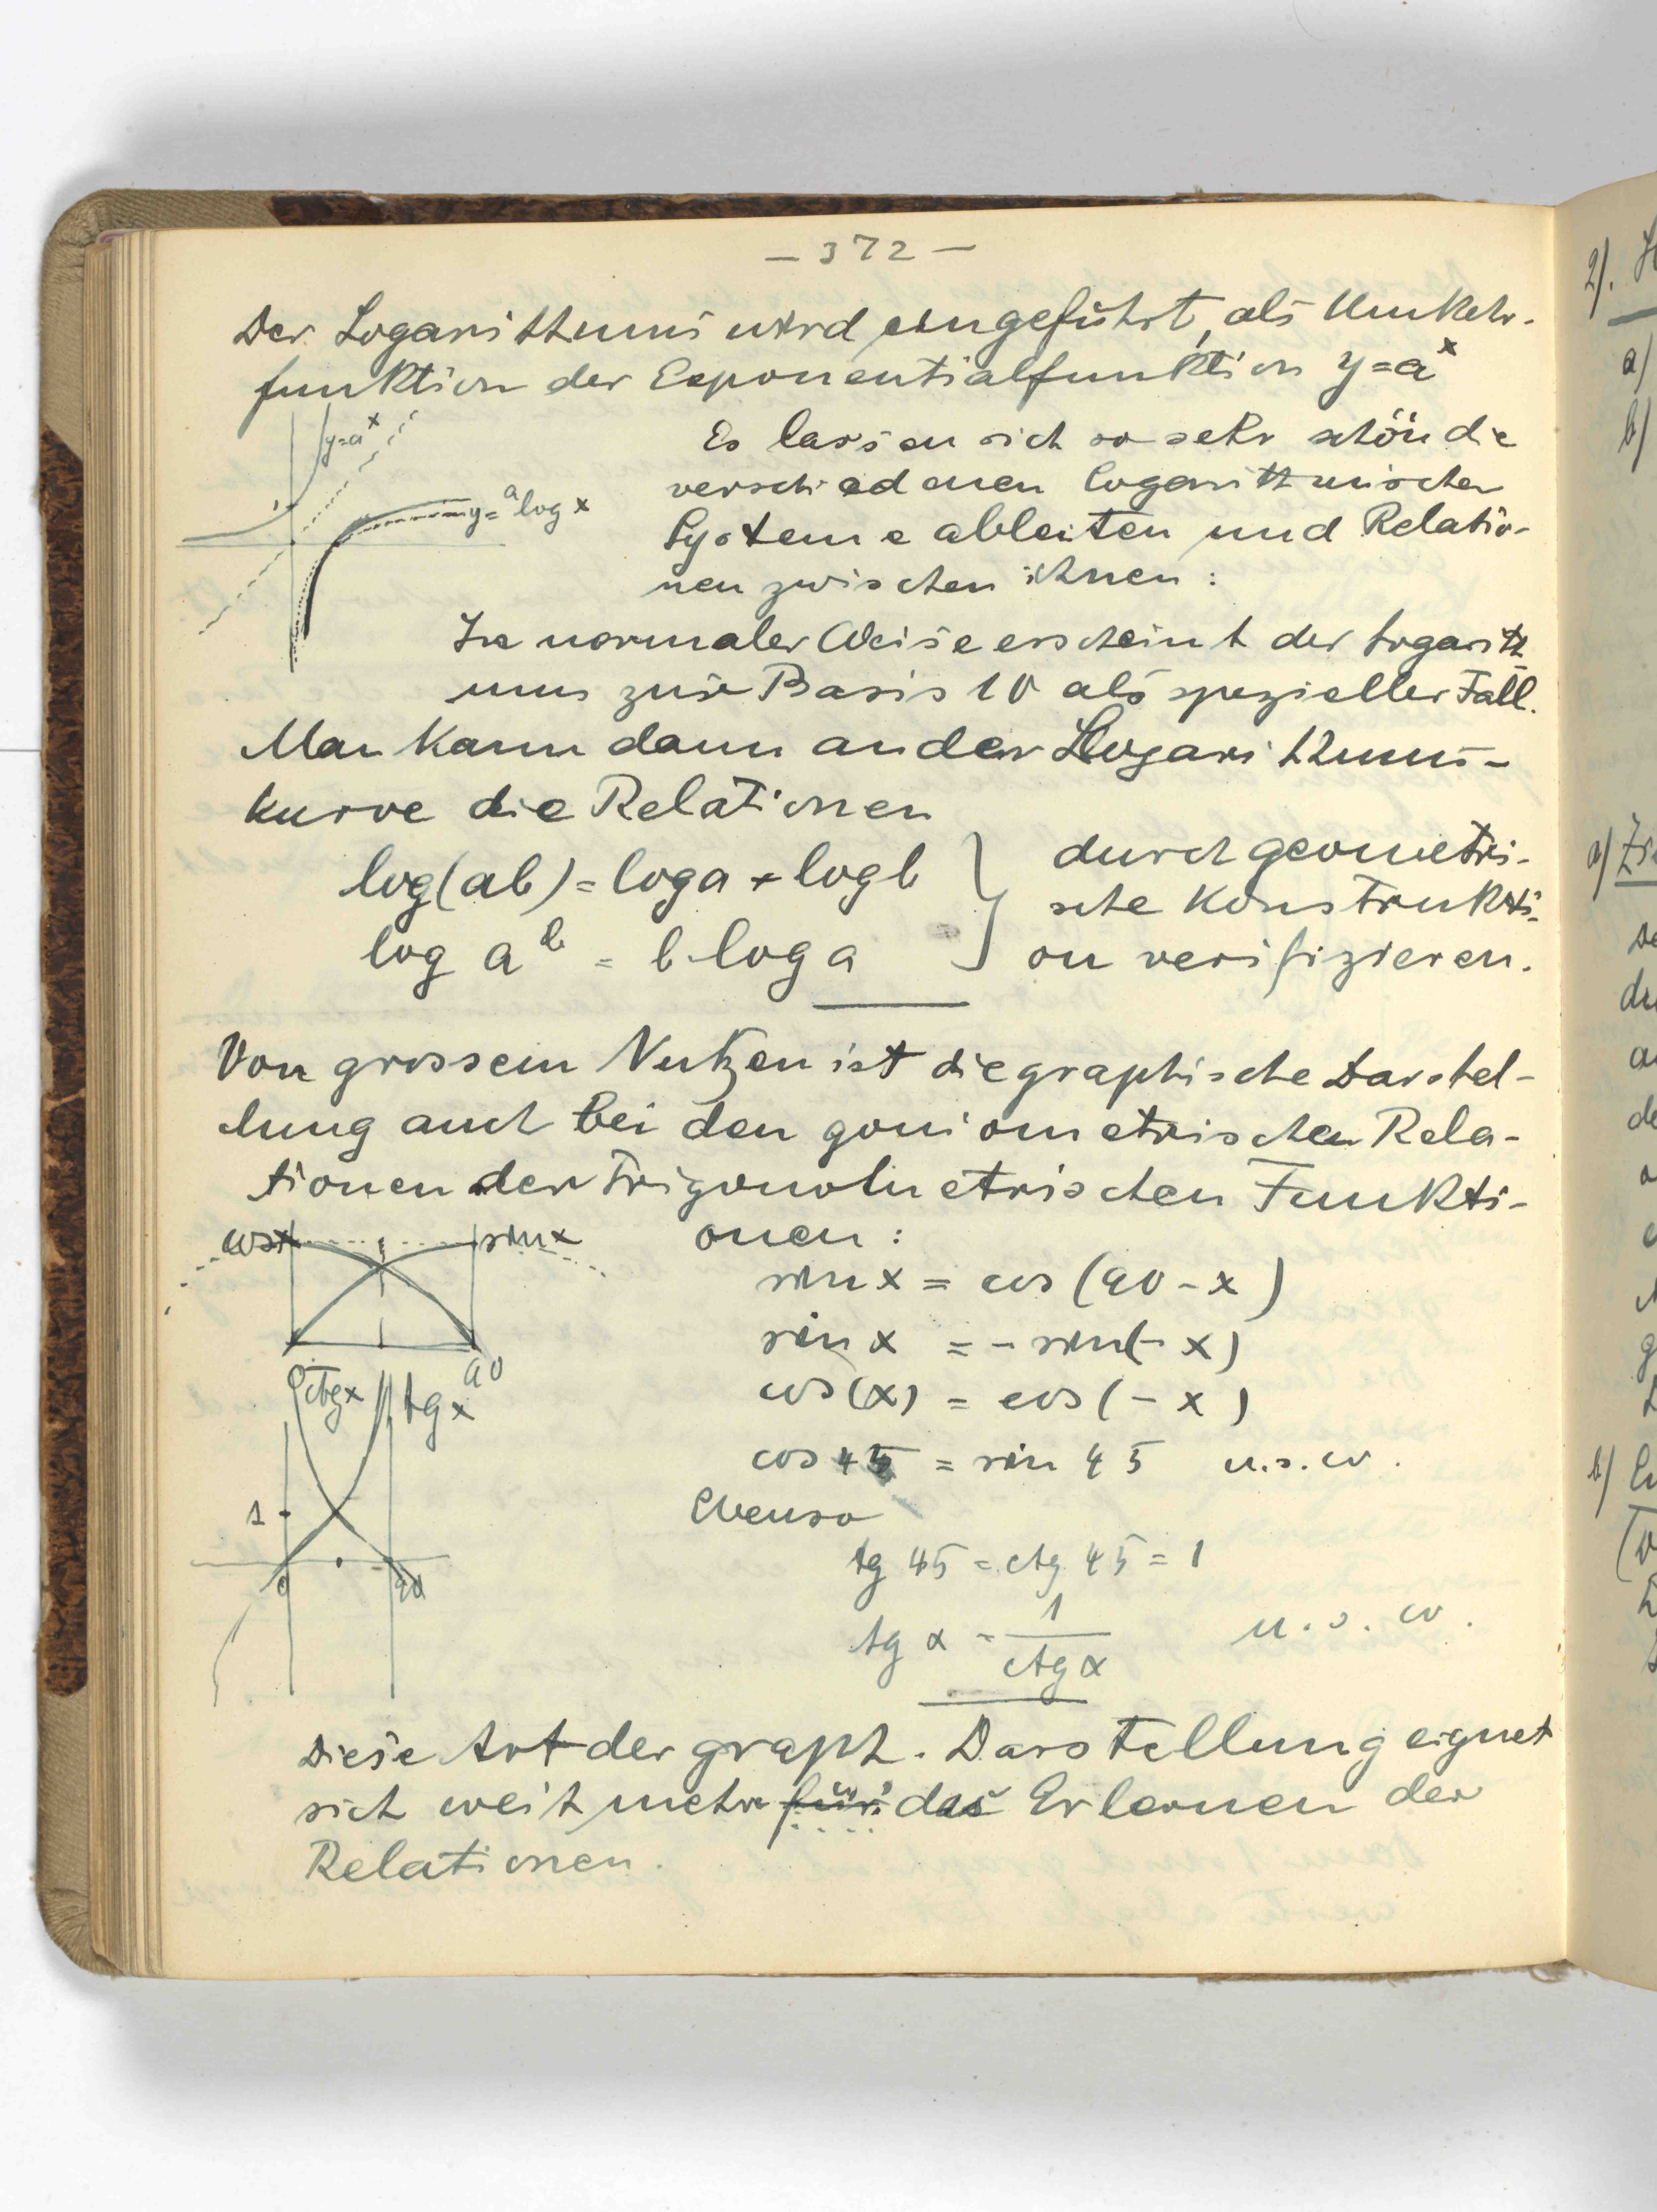 — 372 —
Der Logarithmus wird eingeführt, als Umkehr-
funktion der Exponentialfunktion y=aˣ
y=aˣ
1
y=ᵃlog x
Es lassen sich so sehr schön die
verschiedenen logarithmischen
Systeme ableiten und Relatio-
nen zwischen ihnen:
In normaler Weise erscheint der Logarith
mus zur Basis 10 als spezieller Fall.
Man kann dann an der Logarithmus-
kurve die Relationen
log(ab) = log a + log b
log aᵇ = b log a
durch geometri-
sche Konstrukti-
on verifizieren.
Von grossem Nutzen ist die graphische Darstel-
lung auch bei den goniometrischen Rela-
tionen der trigonometrischen Funkti-
onen:
cos x
sin x
0
90
sin x = cos (90 - x)
sin x = - sin(- x)
cos(x) = cos (- x)
cos 45 = sin 45 u.s.w.
ctg x
tg x
1
0
90
Ebenso
tg 45 = ctg 45 = 1
tg α = 1/ctg α u.s.w.
Diese Art der graph. Darstellung eignet
sich weit mehr für das Erlernen der
Relationen.
2).
a)
b)
a)
b)